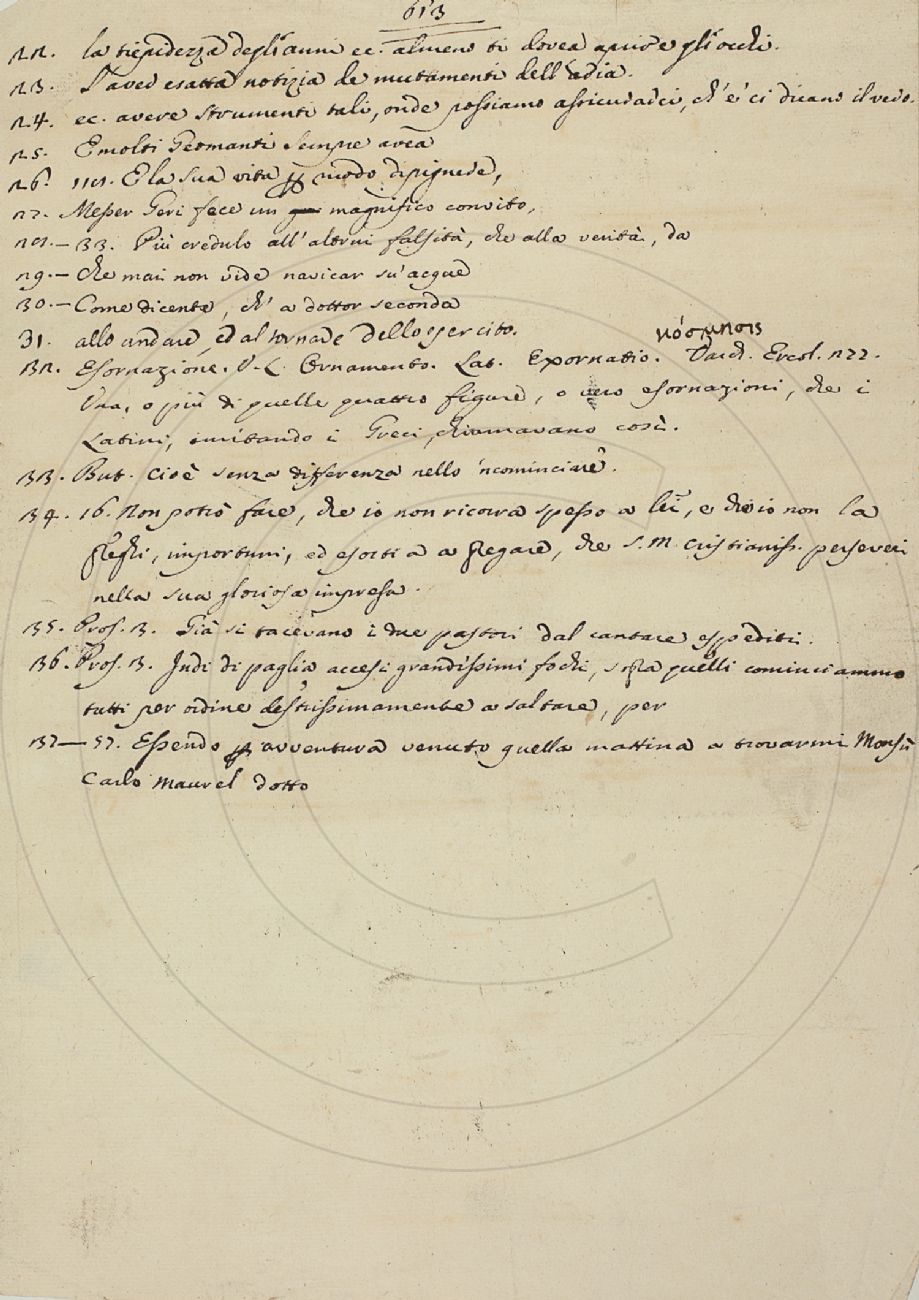 613
22. la tiepidezza degli anni ec. almeno ti dovea aprire gli occhi.
23. L'aver esatta notizia de mutamenti dell'aria.
24. ec. avere strumenti tali, onde possiamo assicurarci, ch'e' ci dicano il vero.
25. E molti Geomanti sempre avea
26. E la sua vita modo dipignere,
27. Messer Geri fece un magnifico convito,
33. Più credulo all'altrui falsità, che alla verità, da
29.— Che mai non vide navicar su' acque
30.— Come dicente, ch' a dottor seconda
31. allo andare, ed al tornare dello esercito.
κόσμησις
32. Esornazione. V. L. Ornamento. Lat. Exornatio. Varch. Ercol. 272.
Una, o più di quelle quattro figure, o vero esornazioni, che i
Latini, imitando i Greci, chiamavano così.
33. But. Cioè senza differenza nello 'ncominciare.
34. 16. Non potrò fare, che io non ricorra spesso a lei, e ch'io non la
preghi, importuni, ed esorti a pregare, che S. M. Cristianiss. perseveri
nella sua gloriosa impresa.
35. Pros. 3. Già si tacevano i due pastori dal cantare espediti.
36. Pros. 3. Indi di paglia accesi grandissimi fochi, sopra quelli cominciammo
tutti per ordine destrissimamente a saltare, per
37— 57. Essendo avventura venuto quella mattina a trovarmi Monsù
Carlo Maurel dotto